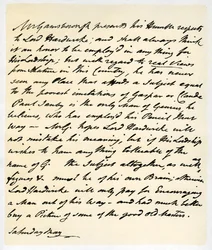 Mr Gainsborough presents his Humble respects
to Lord Hardwicke; and shall always think
it an honor to be employ'd in any thing for
his Lordship; but with regard to real Views
from Nature in this Country, he has never
seen any Place that affords a Subject equal
to the poorest imitations of Gaspar or Claude.
Paul Sanby is the only Man of Genius, he
believes, who has employ'd his Pencil that
way — Mr G. hopes Lord Hardwicke will
not mistake his meaning, but if his Lordship
wishes to have any thing tollerable of the
name of G. the Subject altogether, as well as
figures &c must be of his own Brain; otherwise
Lord Hardwicke will only pay for Encouraging
a Man out of his way — and had much better
buy a Picture of some of the good Old Masters.
Saturday Morg